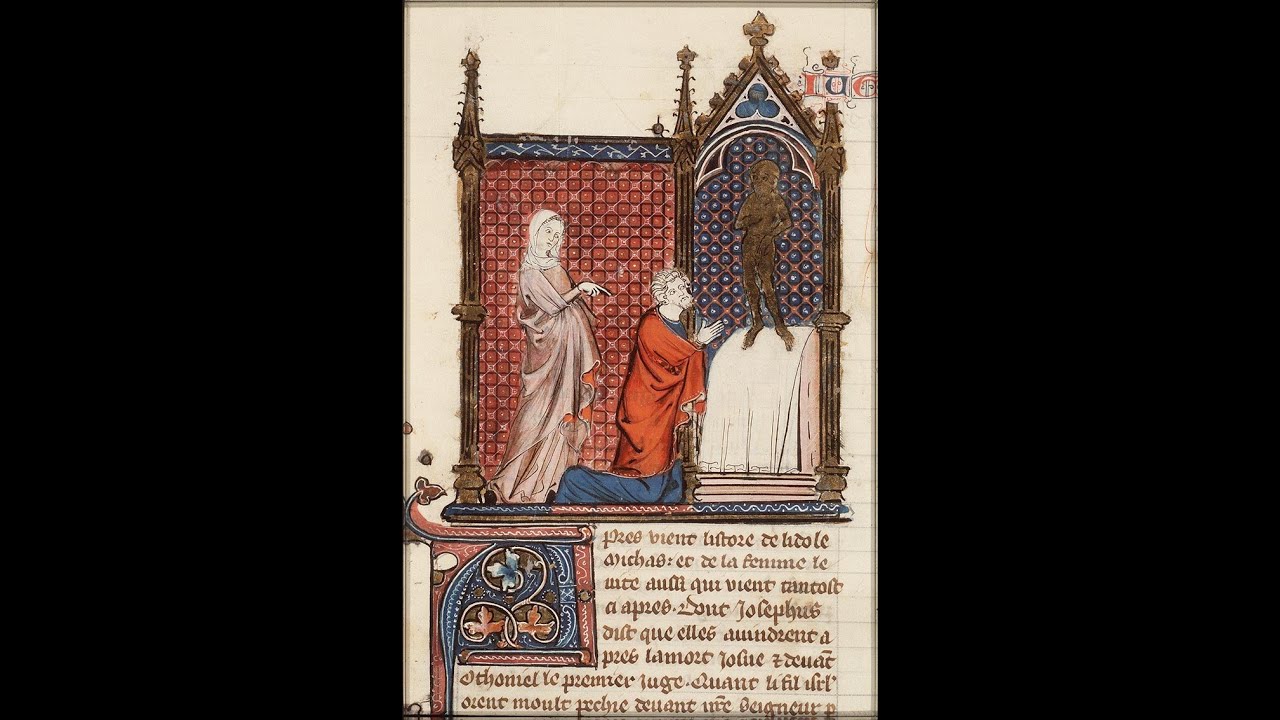 IUG
Apres vient listore de lidole
Michas: et de la femme le
uite aussi qui vient tantost
ci apres. Dont Josephus
dist que elles auindrent a
pres la mort Josue ⁊ deuãt
Othoniel le premier iuge. Quant li fil isrl'
orent moult pechie deuant nr̃e seigneur p